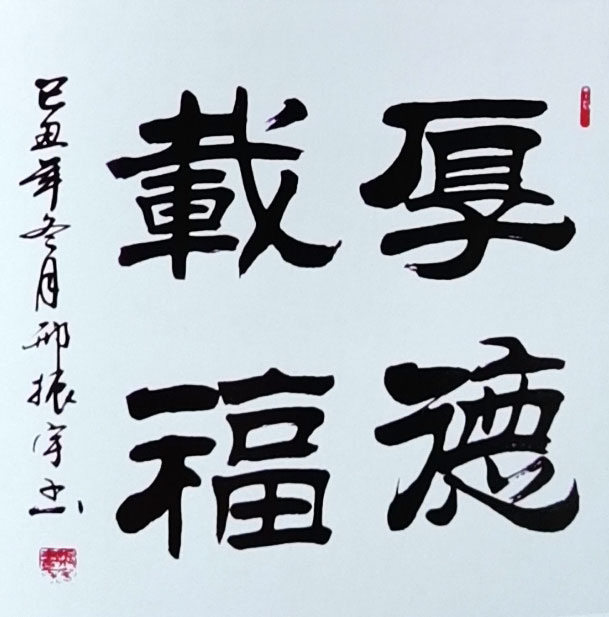 厚德
載福
己丑年冬月邢振宇书